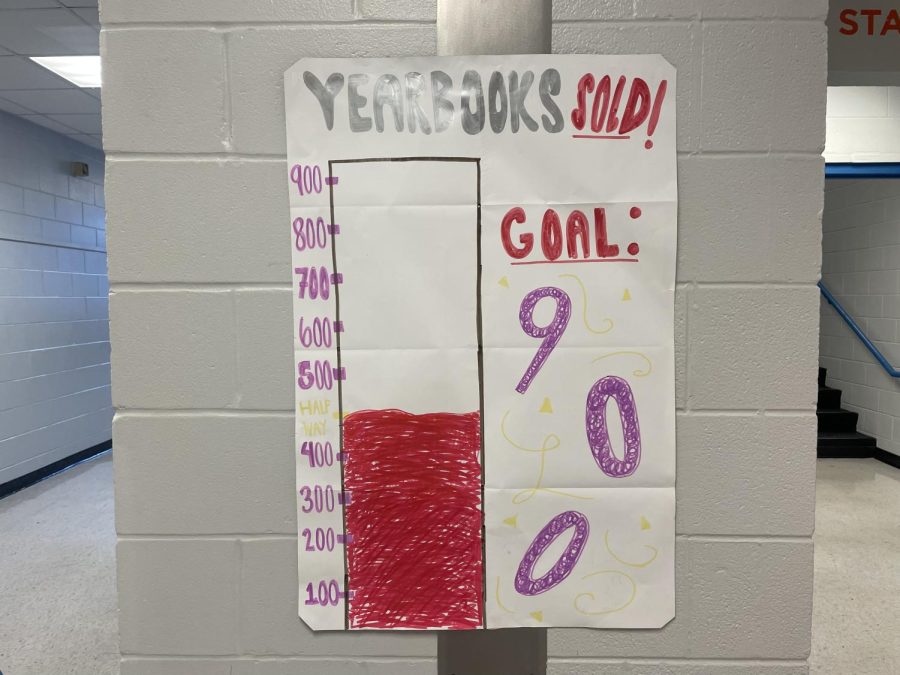 YEARBOOKS SOLD!
900
800
700
600
500
HALF
WAY
400
300
200
100
GOAL:
9
0
0
STA